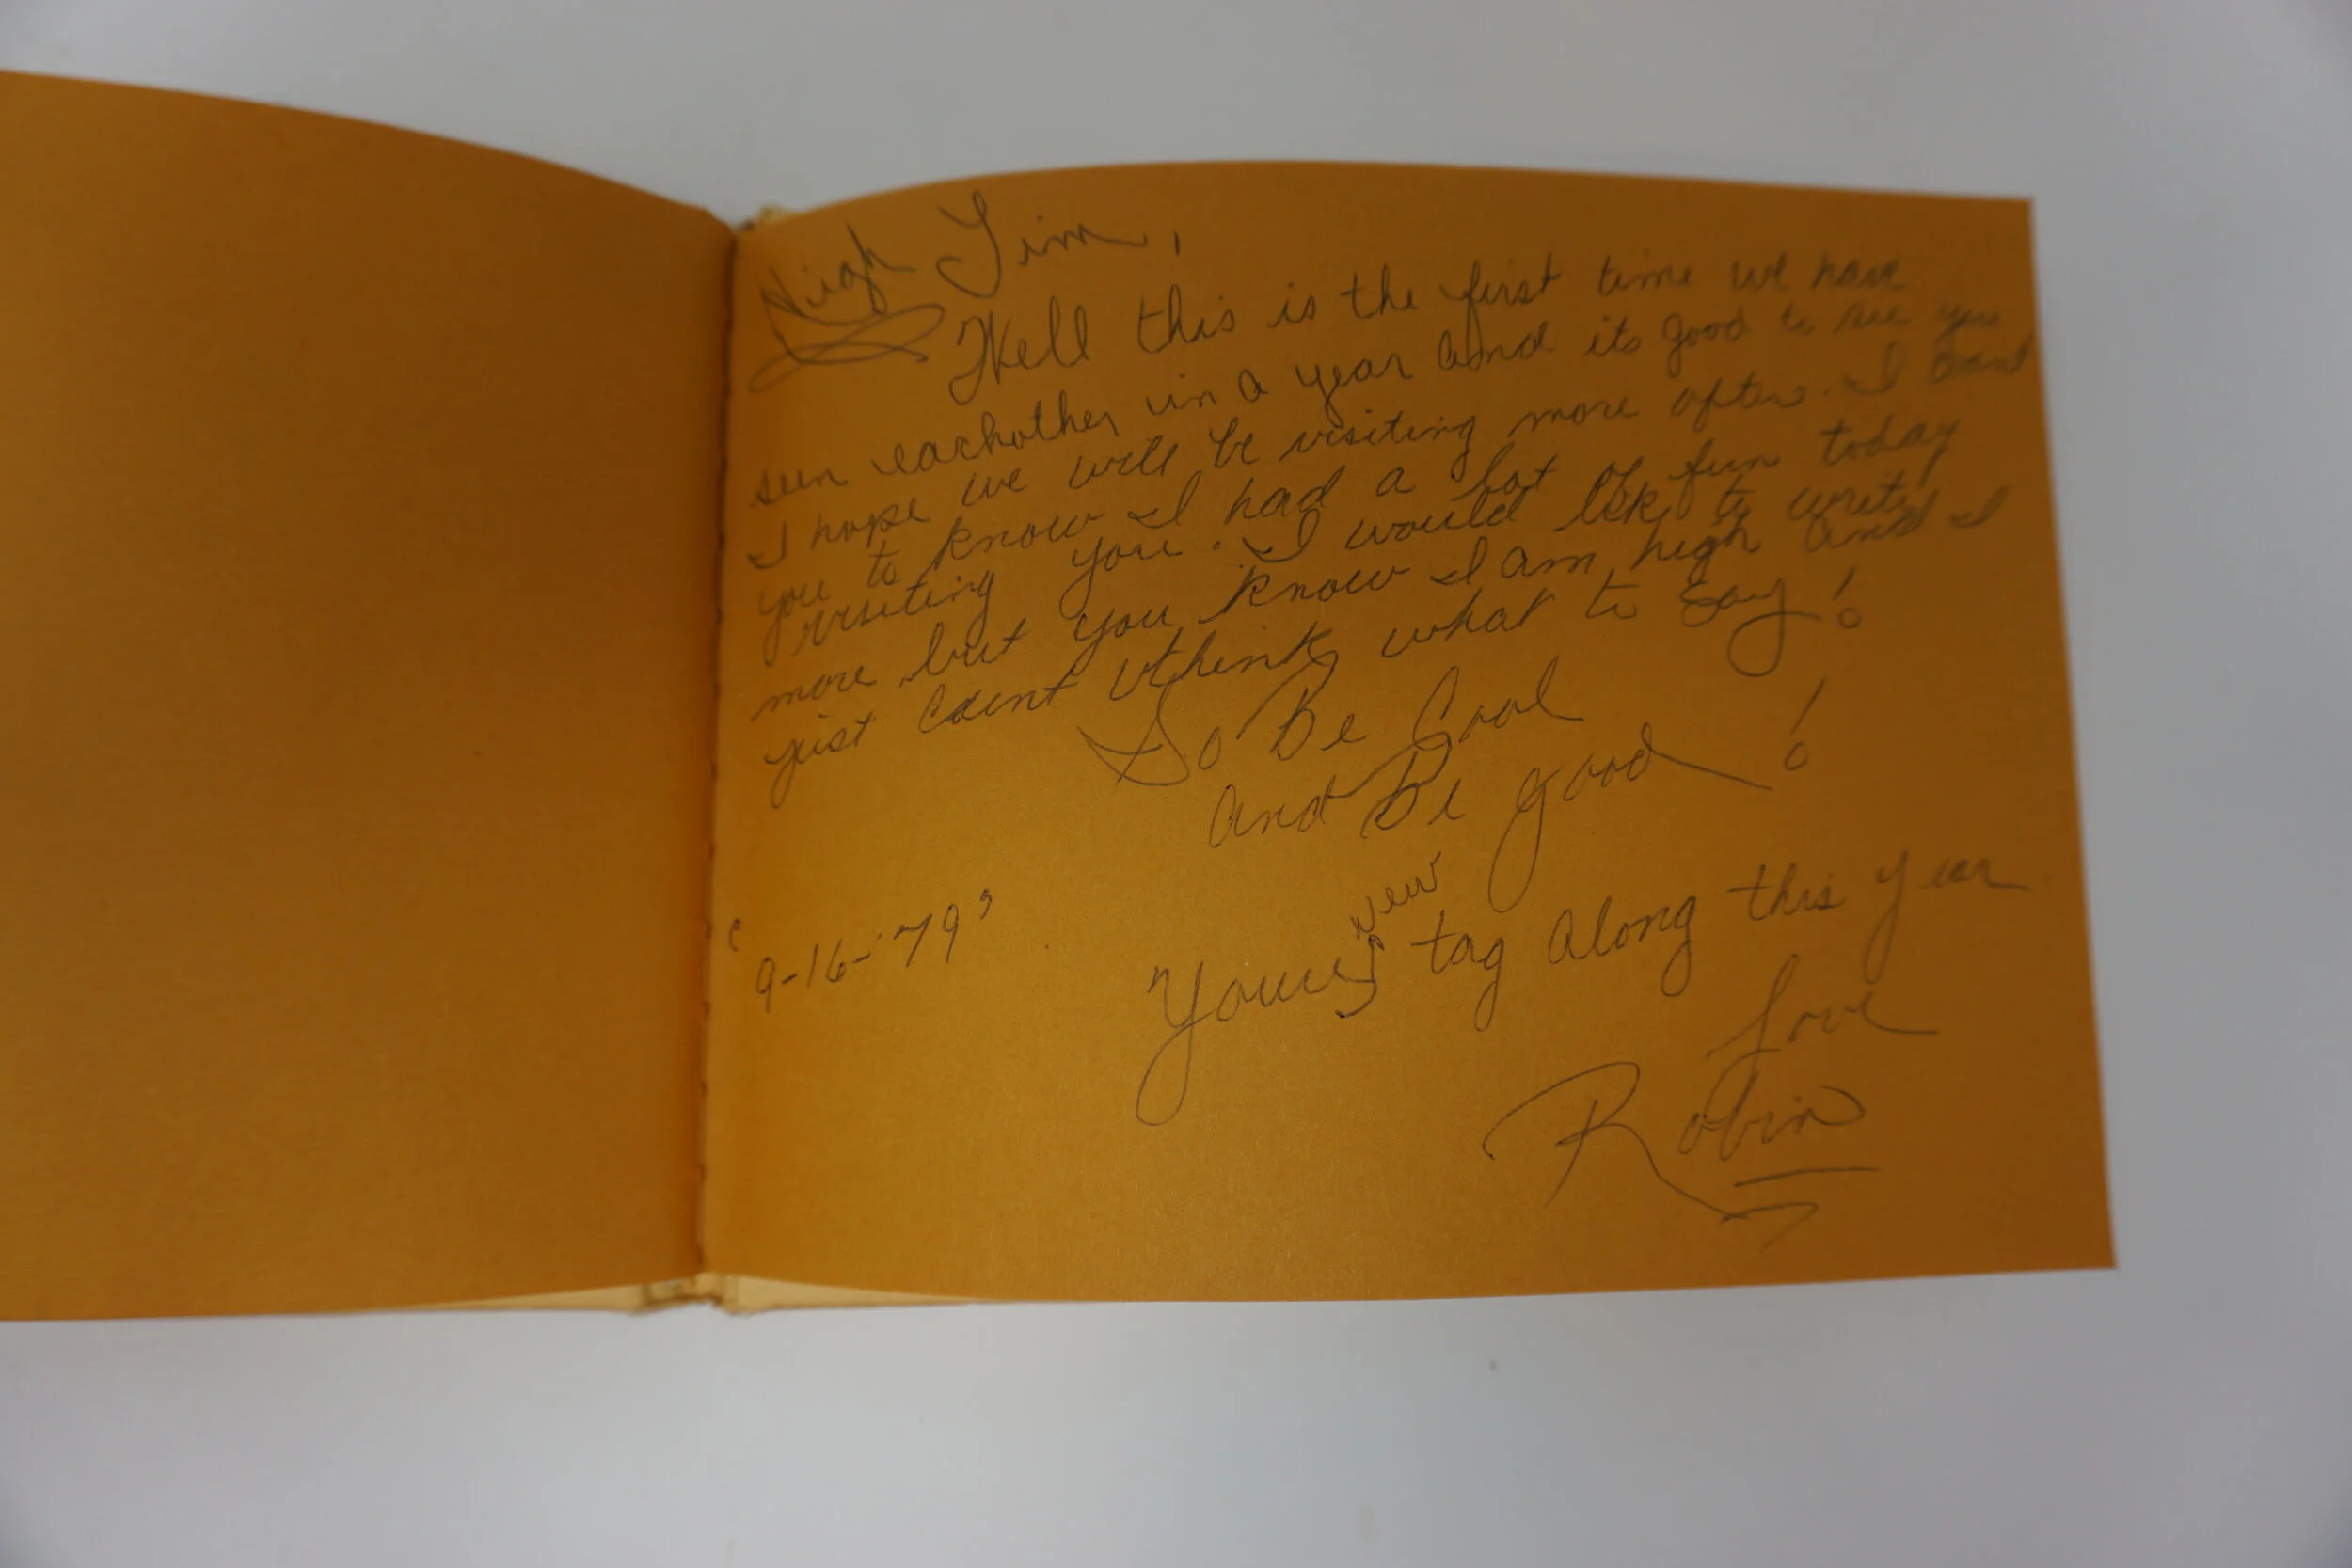 High Jim,
Well this is the first time we have
seen eachother in a year and its good to see you
I hope we will be visiting more often. I want
you to know I had a lot of fun today
visiting you. I would like to write
more but you know I am high and I
just caint think what to say!
So Be Cool
and Be good!
Your new tag along this year
"9-16-'79"
Love
Robin